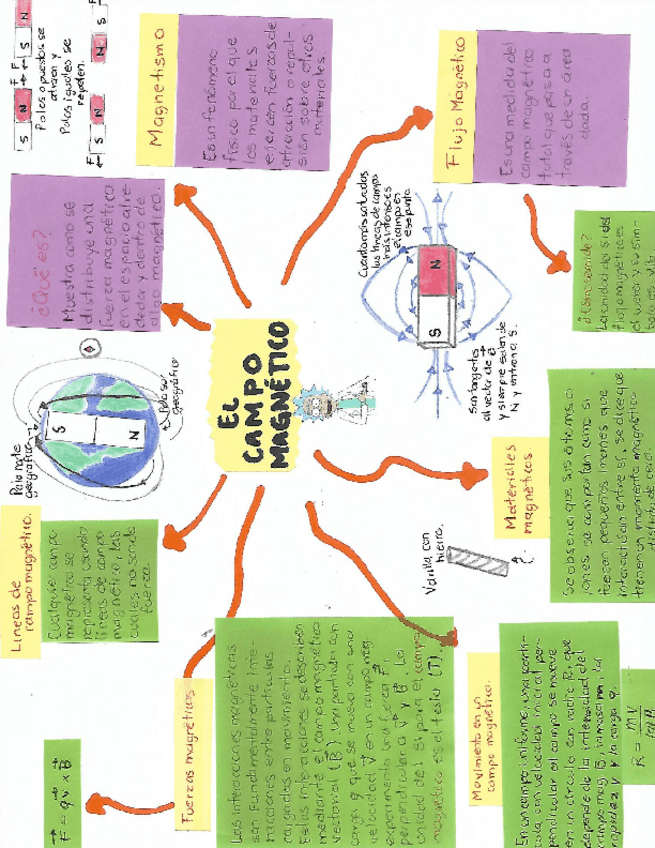 EL
CAMPO
MAGNÉTICO
¿Qué es?
Muestra como se
distribuye una
fuerza magnética
en el espacio alre-
dedor y dentro de
algo magnético.
Magnetismo
Es un fenómeno
físico por el que
los materiales
ejercen fuerzas de
atracción o repul-
sión sobre otros
materiales.
F
F
S N
S N
Polos opuestos se
atraen y
Polos iguales se
repelen.
F
S N
N S
F
Flujo Magnético
Es una medida del
campo magnético
total que pasa a
través de un área
dada.
¿Cómo se mide?
La unidad del SI del
flujo magnético es
el weber y su sím-
bolo es Wb
Cuando más juntas
las líneas de campo
más intenso es
el campo en
ese punto.
S N
Son tangentes
al vector de B
y siempre salen de
N y entran a S.
Materiales
magnéticos.
Se observa que sus átomos o
iones se comportan como si
fuesen pequeños imanes que
interactúan entre sí, se dice que
tienen un momento magnético
distinto de cero.
Varilla con
hierro.
Movimiento en un
campo magnético.
En un campo uniforme, una partí-
cula con velocidad inicial per-
pendicular al campo se mueve
en un círculo con radio R, que
depende de la intensidad del
campo mag B, la masa m, la
rapidez V y la carga q.
R = mV
Fuerzas magnéticas
Las interacciones magnéticas
son fundamentalmente inte-
racciones entre partículas
cargadas en movimiento.
Estas interacciones se describen
mediante el campo magnético
vectorial (B) una partícula con
carga q que se mueva con una
velocidad V en un campo mag.
experimenta una fuerza F,
perpendicular a V y B. La
unidad del SI para el campo
magnético es el tesla (T).
F = qv x B
Líneas de
campo magnético.
Cualquier campo
magnético se
representa usando
líneas de campo
magnético, las
cuales no son de
fuerza.
Polo norte
geográfico
S
N
Polo sur
geográfico